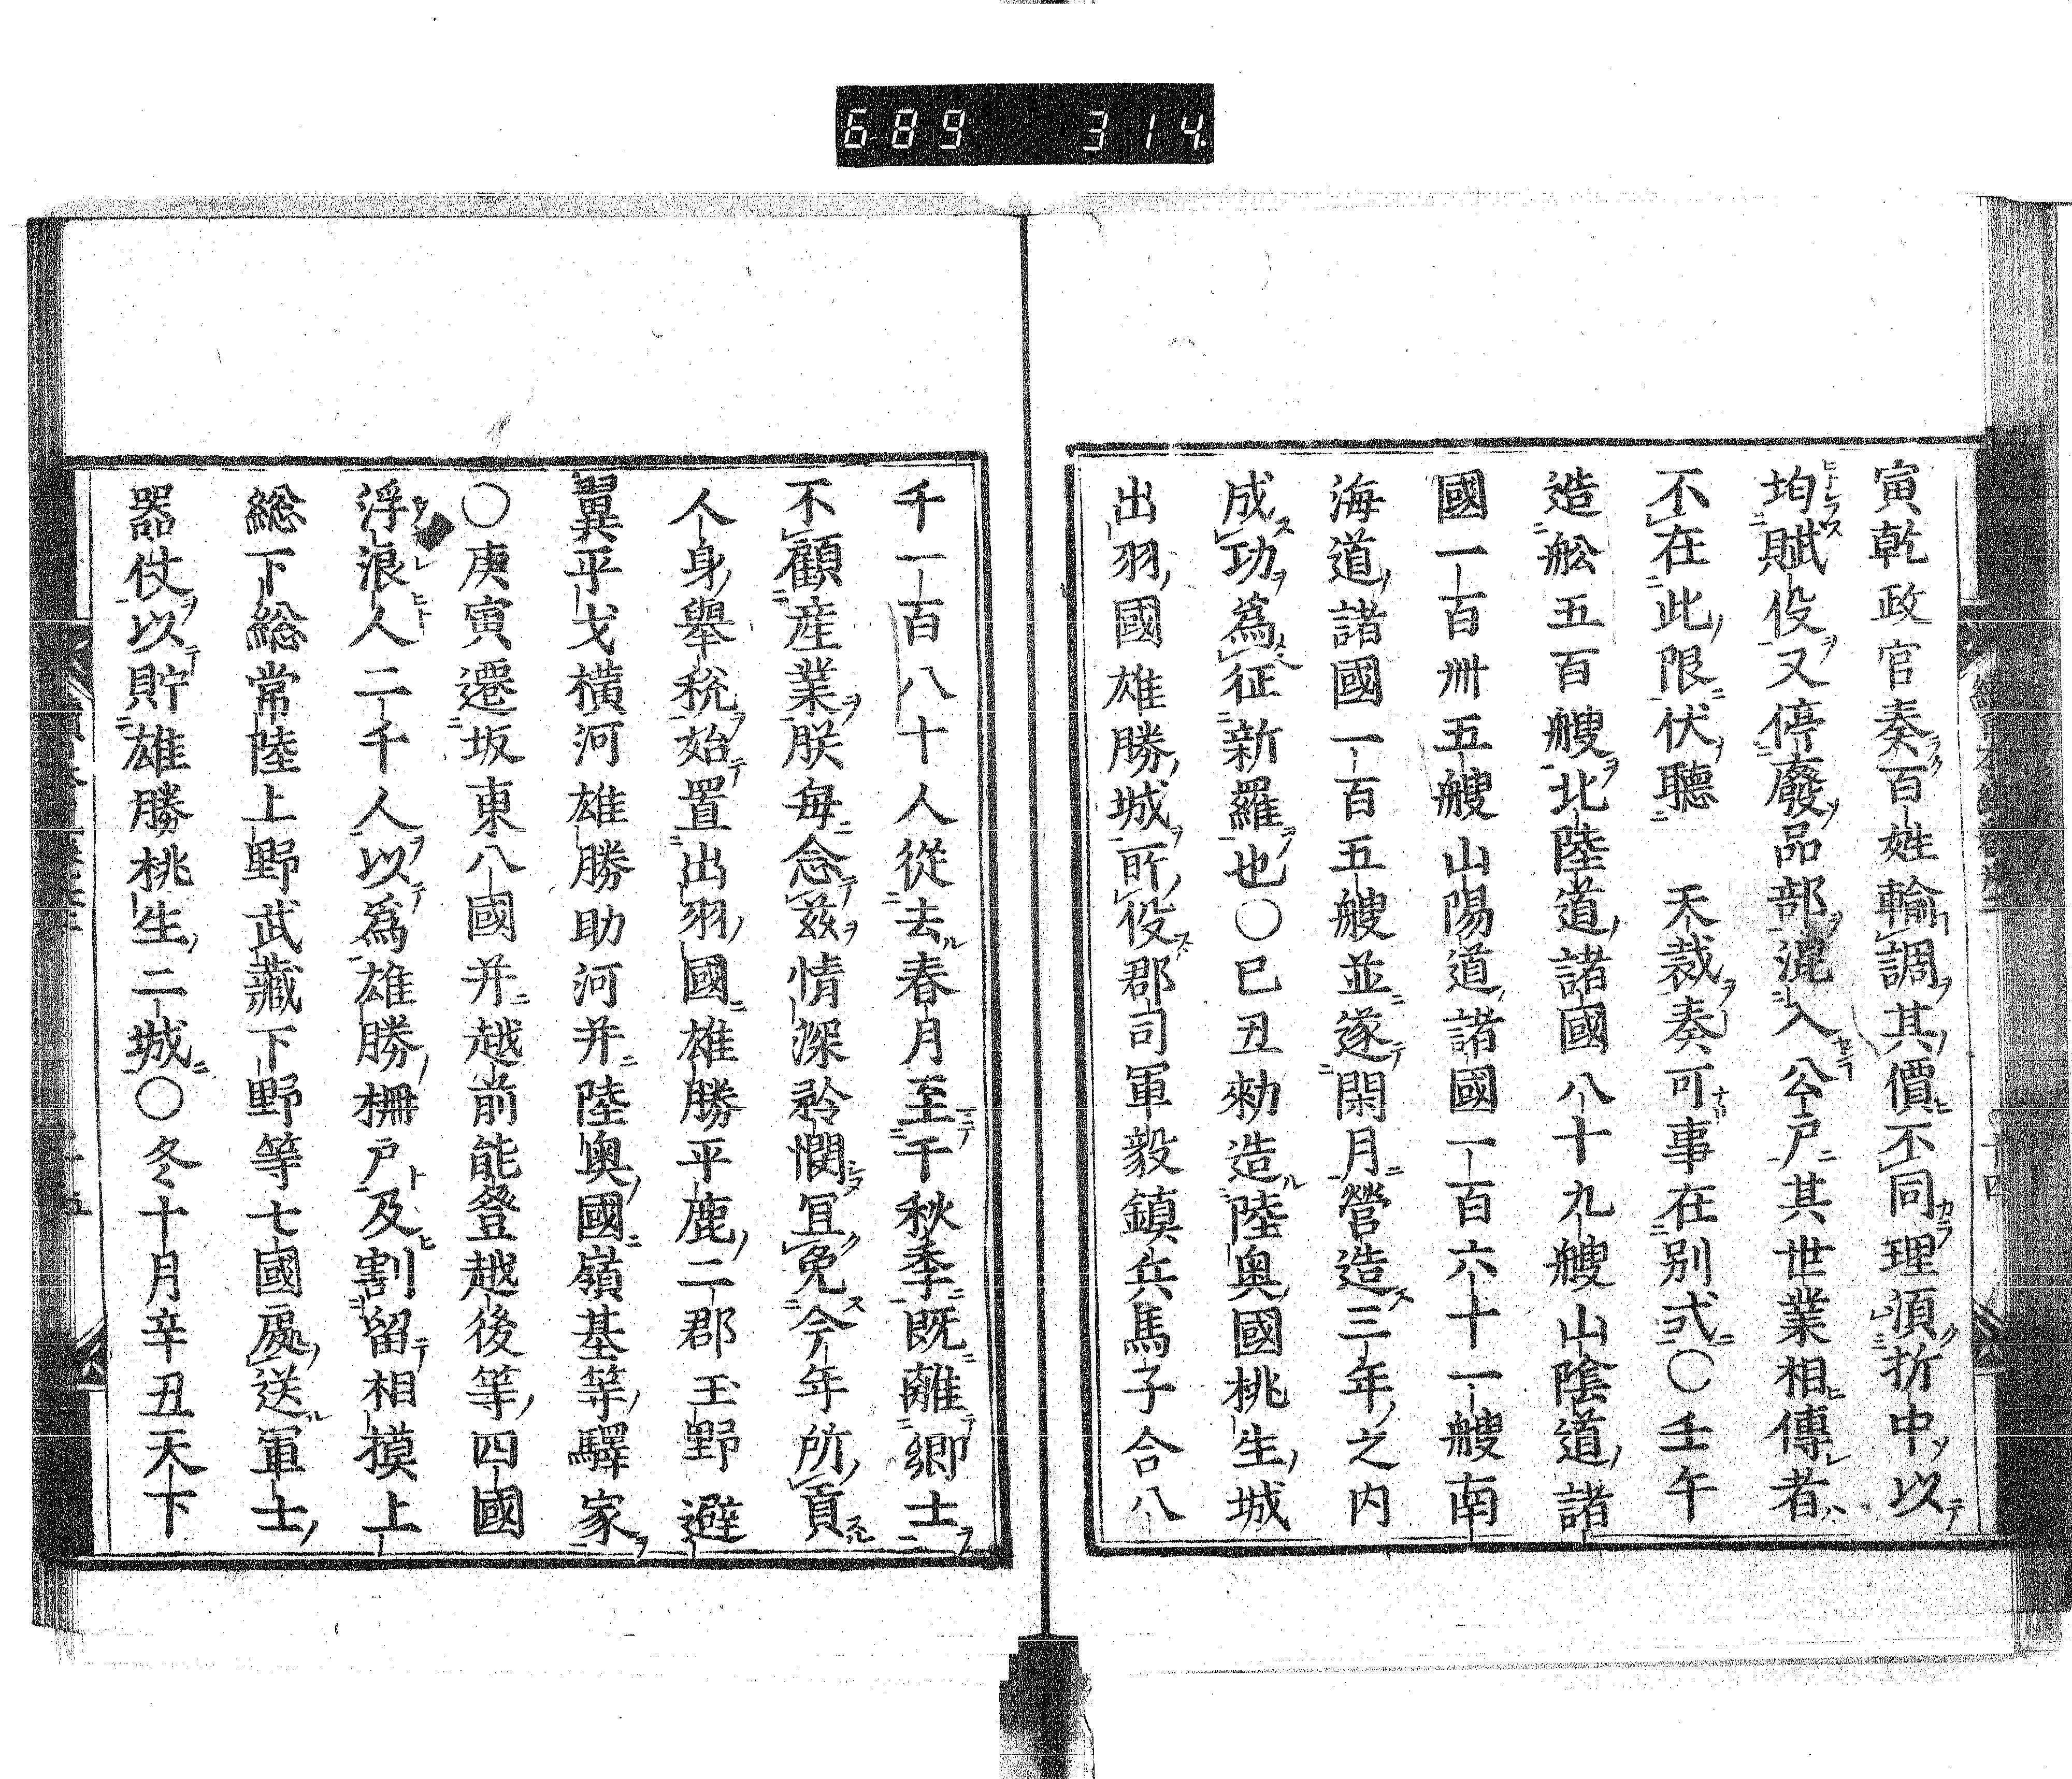 689 314
寅乾政官奏百姓輸調其價不同理湏折中以
均賦役又停廢品部混入公戸其世業相傳者
不在此限伏聽 天裁奏可事在別式〇壬午
造舩五百艘北陸道諸國八十九艘山陰道諸
國一百卌五艘山陽道諸國一百六十一艘南
海道諸國一百五艘並遂閑月營造三年之内
成功爲征新羅也〇已丑勑造陸奥國桃生城
出羽國雄勝城所役郡司軍毅鎮兵馬子合八
千一百八十人從去春月至于秋季既離郷士
不顧産業朕毎念茲情深矜憫冝免今年所貢
人身舉税始置出羽國雄勝平鹿二郡玉野避
翼平戈横河雄勝助河并陸奥國嶺基等驛家
〇庚寅遷坂東八國并越前能登越後等四國
浮浪人二千人以爲雄勝柵戸及割留相摸上
総下総常陸上野武藏下野等七國處送軍士
器仗以貯雄勝桃生二城〇冬十月辛丑天下